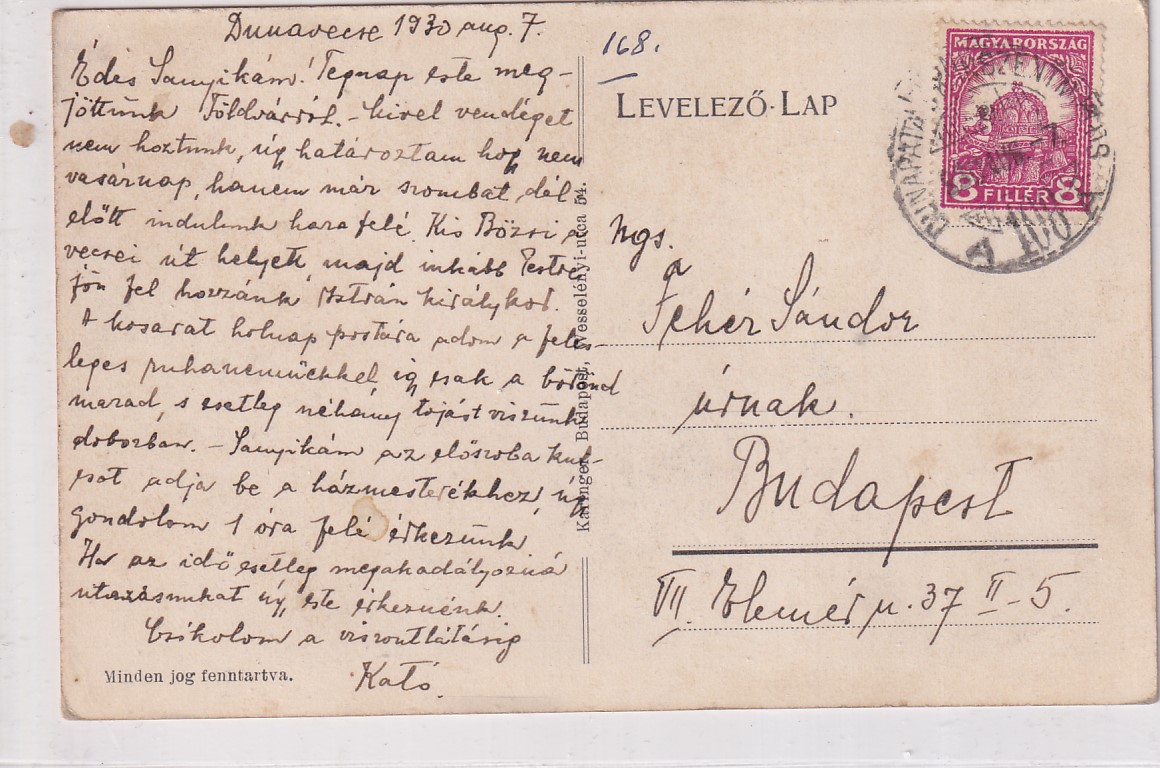 Dunavecse 1930 aug. 7.
Édes Sanyikám! Tegnap este meg-
jöttünk Földvárról. – hivel vendéget
nem hoztunk, úgy határoztam hogy nem
vasárnap, hanem már szombat dél-
előtt indulunk haza felé. Kis Bözsi a
vecsei út helyett, majd inkább Pestre
jön fel hozzánk István királykor.
A kosarat holnap postára adom a feles-
leges ruhaneműekkel, így csak a bőrönd
marad, s esetleg néhány tojást viszünk
dobozban. – Sanyikám az előszoba kul-
csot adja be a házmesterékhez, úgy
gondolom 1 óra felé érkezünk.
Ha az idő esetleg megakadályozná
utazásunkat úgy este érkeznénk.
Csókolom a viszontlátásig
Kató.
Minden jog fenntartva.
Karinger, Budapest, Vesselényi-utca 54.
168.
LEVELEZŐ-LAP
MAGYARORSZÁG
8 FILLÉR 8
Ngs.
Fehér Sándor
úrnak.
Budapest
VII. Elemér u. 37 II-5.